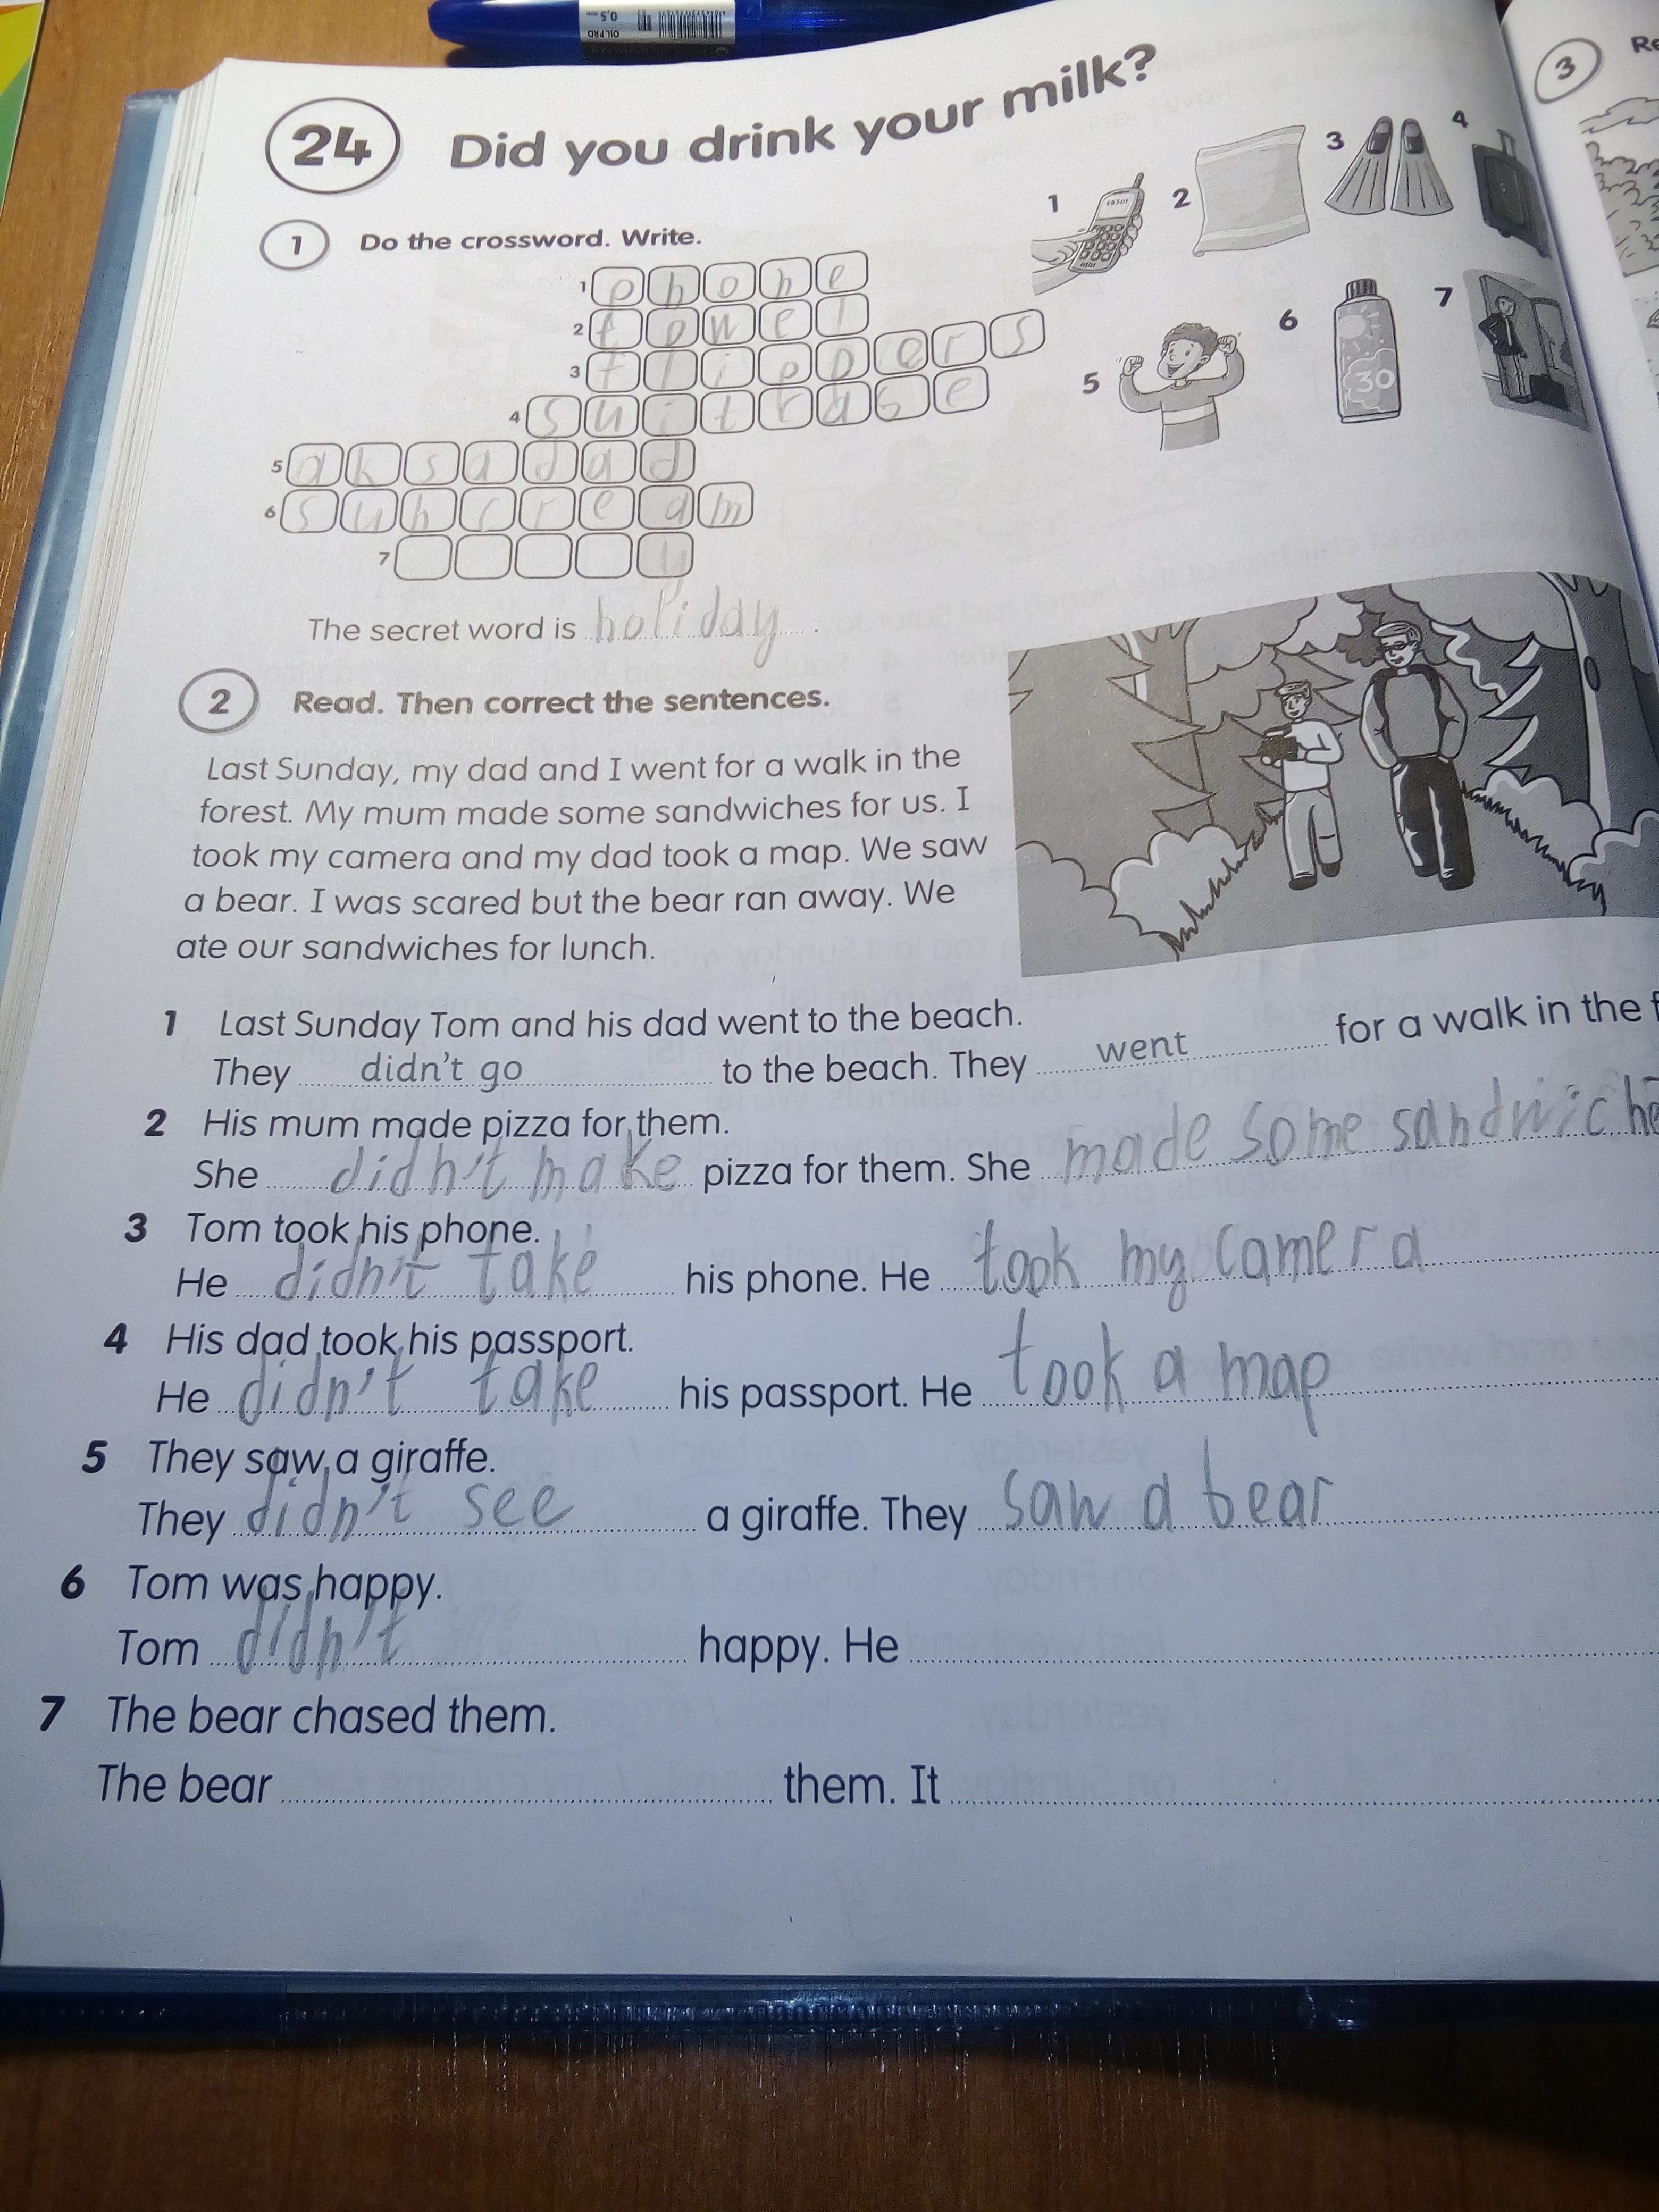 OIL PRO
0,5 mm
24 Did you drink your milk?
3 Re
1 Do the crossword. Write.
1 2 3 4
1 phone
2 towel
3 flippers
4 suitcase
5 6 7
30
5
6 suncream
7 y
The secret word is holiday.
2 Read. Then correct the sentences.
Last Sunday, my dad and I went for a walk in the
forest. My mum made some sandwiches for us. I
took my camera and my dad took a map. We saw
a bear. I was scared but the bear ran away. We
ate our sandwiches for lunch.
1 Last Sunday Tom and his dad went to the beach.
They didn't go to the beach. They went for a walk in the f
2 His mum made pizza for them.
She didn't make pizza for them. She made some sandwiche
3 Tom took his phone.
He didn't take his phone. He took my camera
4 His dad took his passport.
He didn't take his passport. He took a map
5 They saw a giraffe.
They didn't see a giraffe. They saw a bear
6 Tom was happy.
Tom didn't happy. He
7 The bear chased them.
The bear them. It